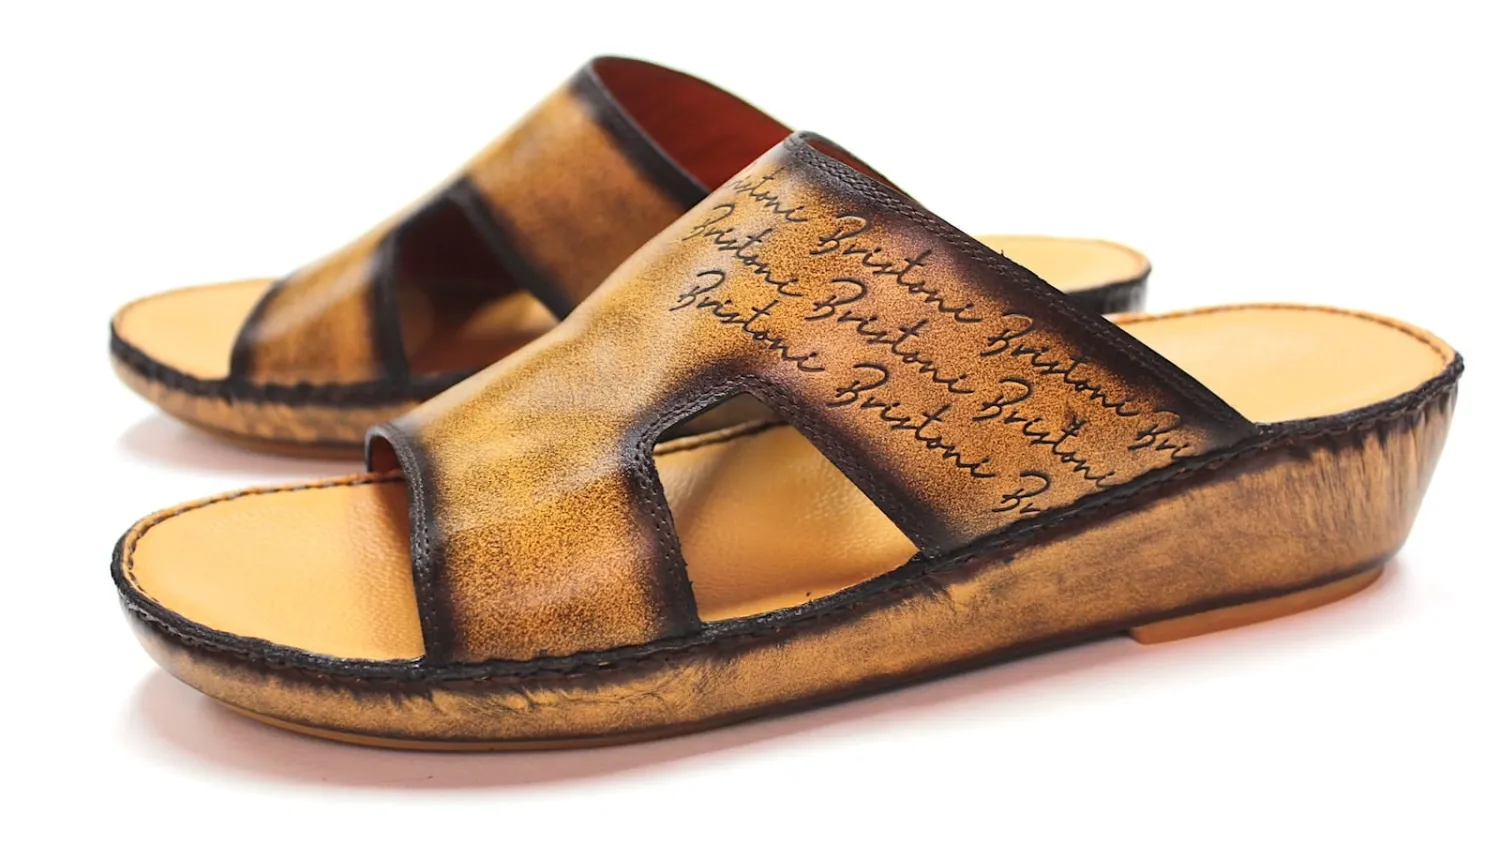 ristoni Bristoni Bristoni Bri
Bristoni Bristoni Bristoni
Bristoni Bristoni Br